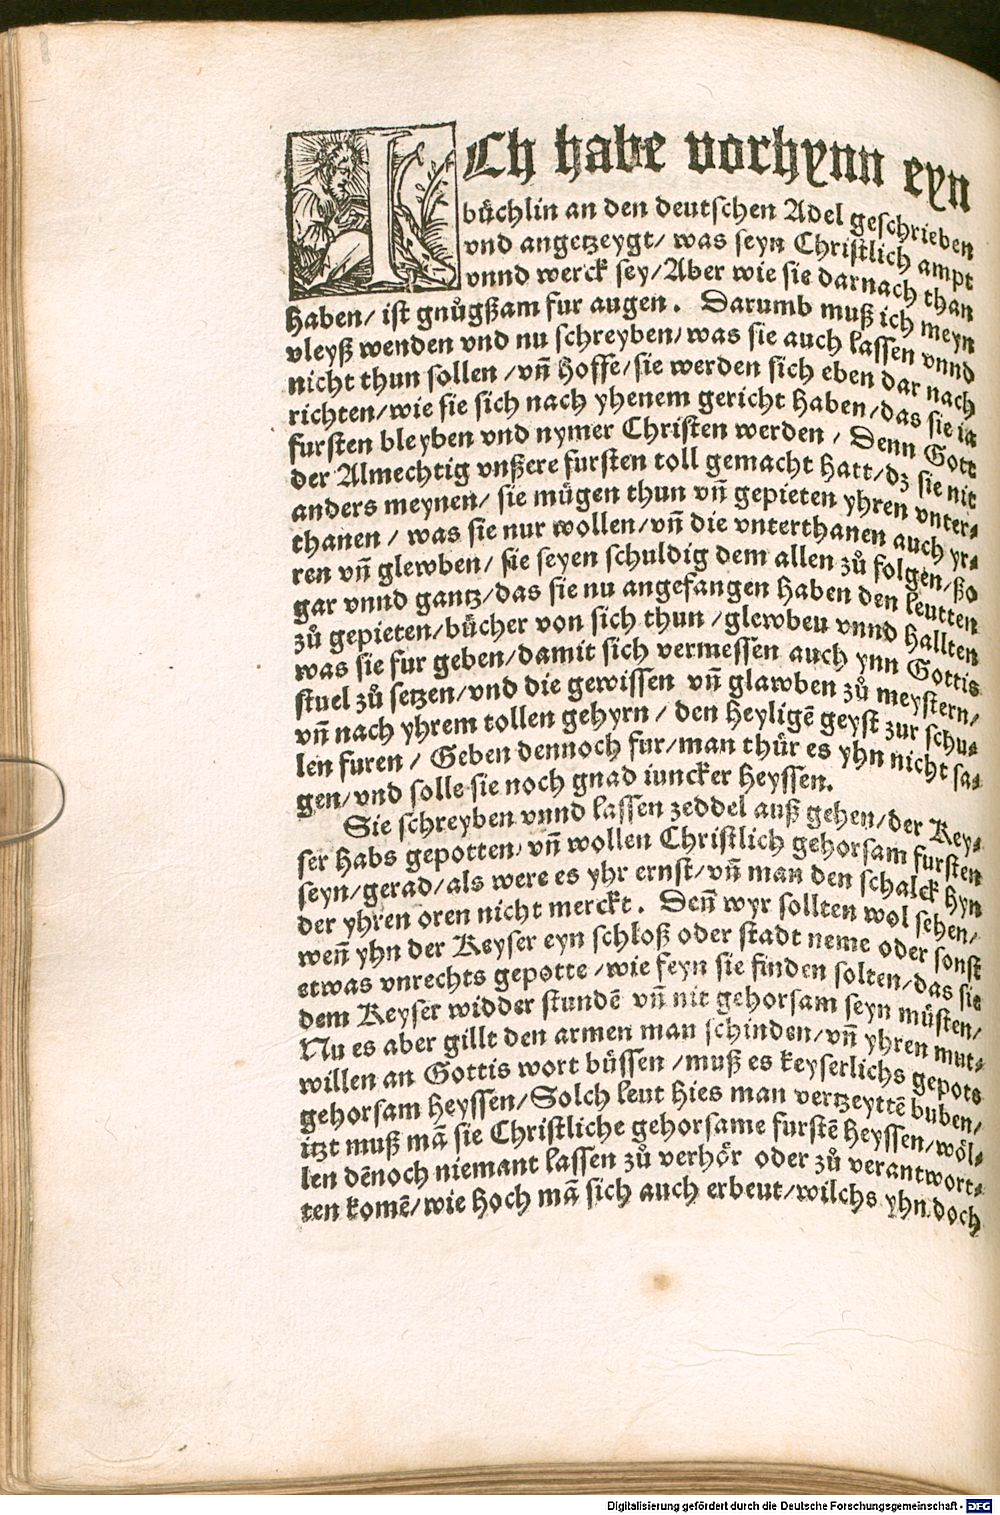 ICh habe vorhynn eyn
bůchlin an den deutschen Adel geschrieben
vnd angetzeygt/ was seyn Christlich ampt
vnnd werck sey/Aber wie sie darnach than
haben/ ist gnůgßam fur augen. Darumb muß ich meyn
vleyß wenden vnd nu schreyben/was sie auch lassen vnnd
nicht thun sollen /vn̄ hoffe/sie werden sich eben dar nach
richten/wie sie sich nach yhenem gericht haben/das sie ia
fursten bleyben vnd nymer Christen werden / Denn Gott
der Almechtig vnßere fursten toll gemacht hatt/dz sie nit
anders meynen/ sie mügen thun vn̄ gepieten yhren vnter⸗
thanen / was sie nur wollen/vn̄ die vnterthanen auch yr⸗
ren vn̄ glewben/ sie seyen schuldig dem allen zů folgen/ßo
gar vnnd gantz/das sie nu angefangen haben den leutten
zů gepieten/bücher von sich thun /glewbeu vnnd hallten
was sie fur geben/damit sich vermessen auch ynn Gottis
stuel zů setzen/vnd die gewissen vn̄ glawben zů meystern/
vn̄ nach yhrem tollen gehyrn / den heyligē geyst zur schu⸗
len furen / Geben dennoch fur/man thür es yhn nicht sa⸗
gen/vnd solle sie noch gnad iuncker heyssen.
Sie schreyben vnnd lassen zeddel auß gehen/der Key⸗
ser habs gepotten/vn̄ wollen Christlich gehorsam fursten
seyn/gerad/als were es yhr ernst/vn̄ man den schalck hyn
der yhren oren nicht merckt. Den̄ wyr sollten wol sehen/
wen̄ yhn der Keyser eyn schloß oder stadt neme oder sonst
etwas vnrechts gepotte /wie feyn sie finden solten/das sie
dem Keyser widder stundē vn̄ nit gehorsam seyn müsten/
Nu es aber gillt den armen man schinden/vn̄ yhren mut⸗
willen an Gottis wort büssen /muß es keyserlichs gepots
gehorsam heyssen/Solch leut hies man vertzeyttē buben/
itzt muß mā sie Christliche gehorsame furstē heyssen/wöl⸗
len dēnoch niemant lassen zů verhör oder zů verantwort⸗
ten komē/wie hoch mā sich auch erbeut/wilchs yhn doch
Digitalisierung gefördert durch die Deutsche Forschungsgemeinschaft - DFG